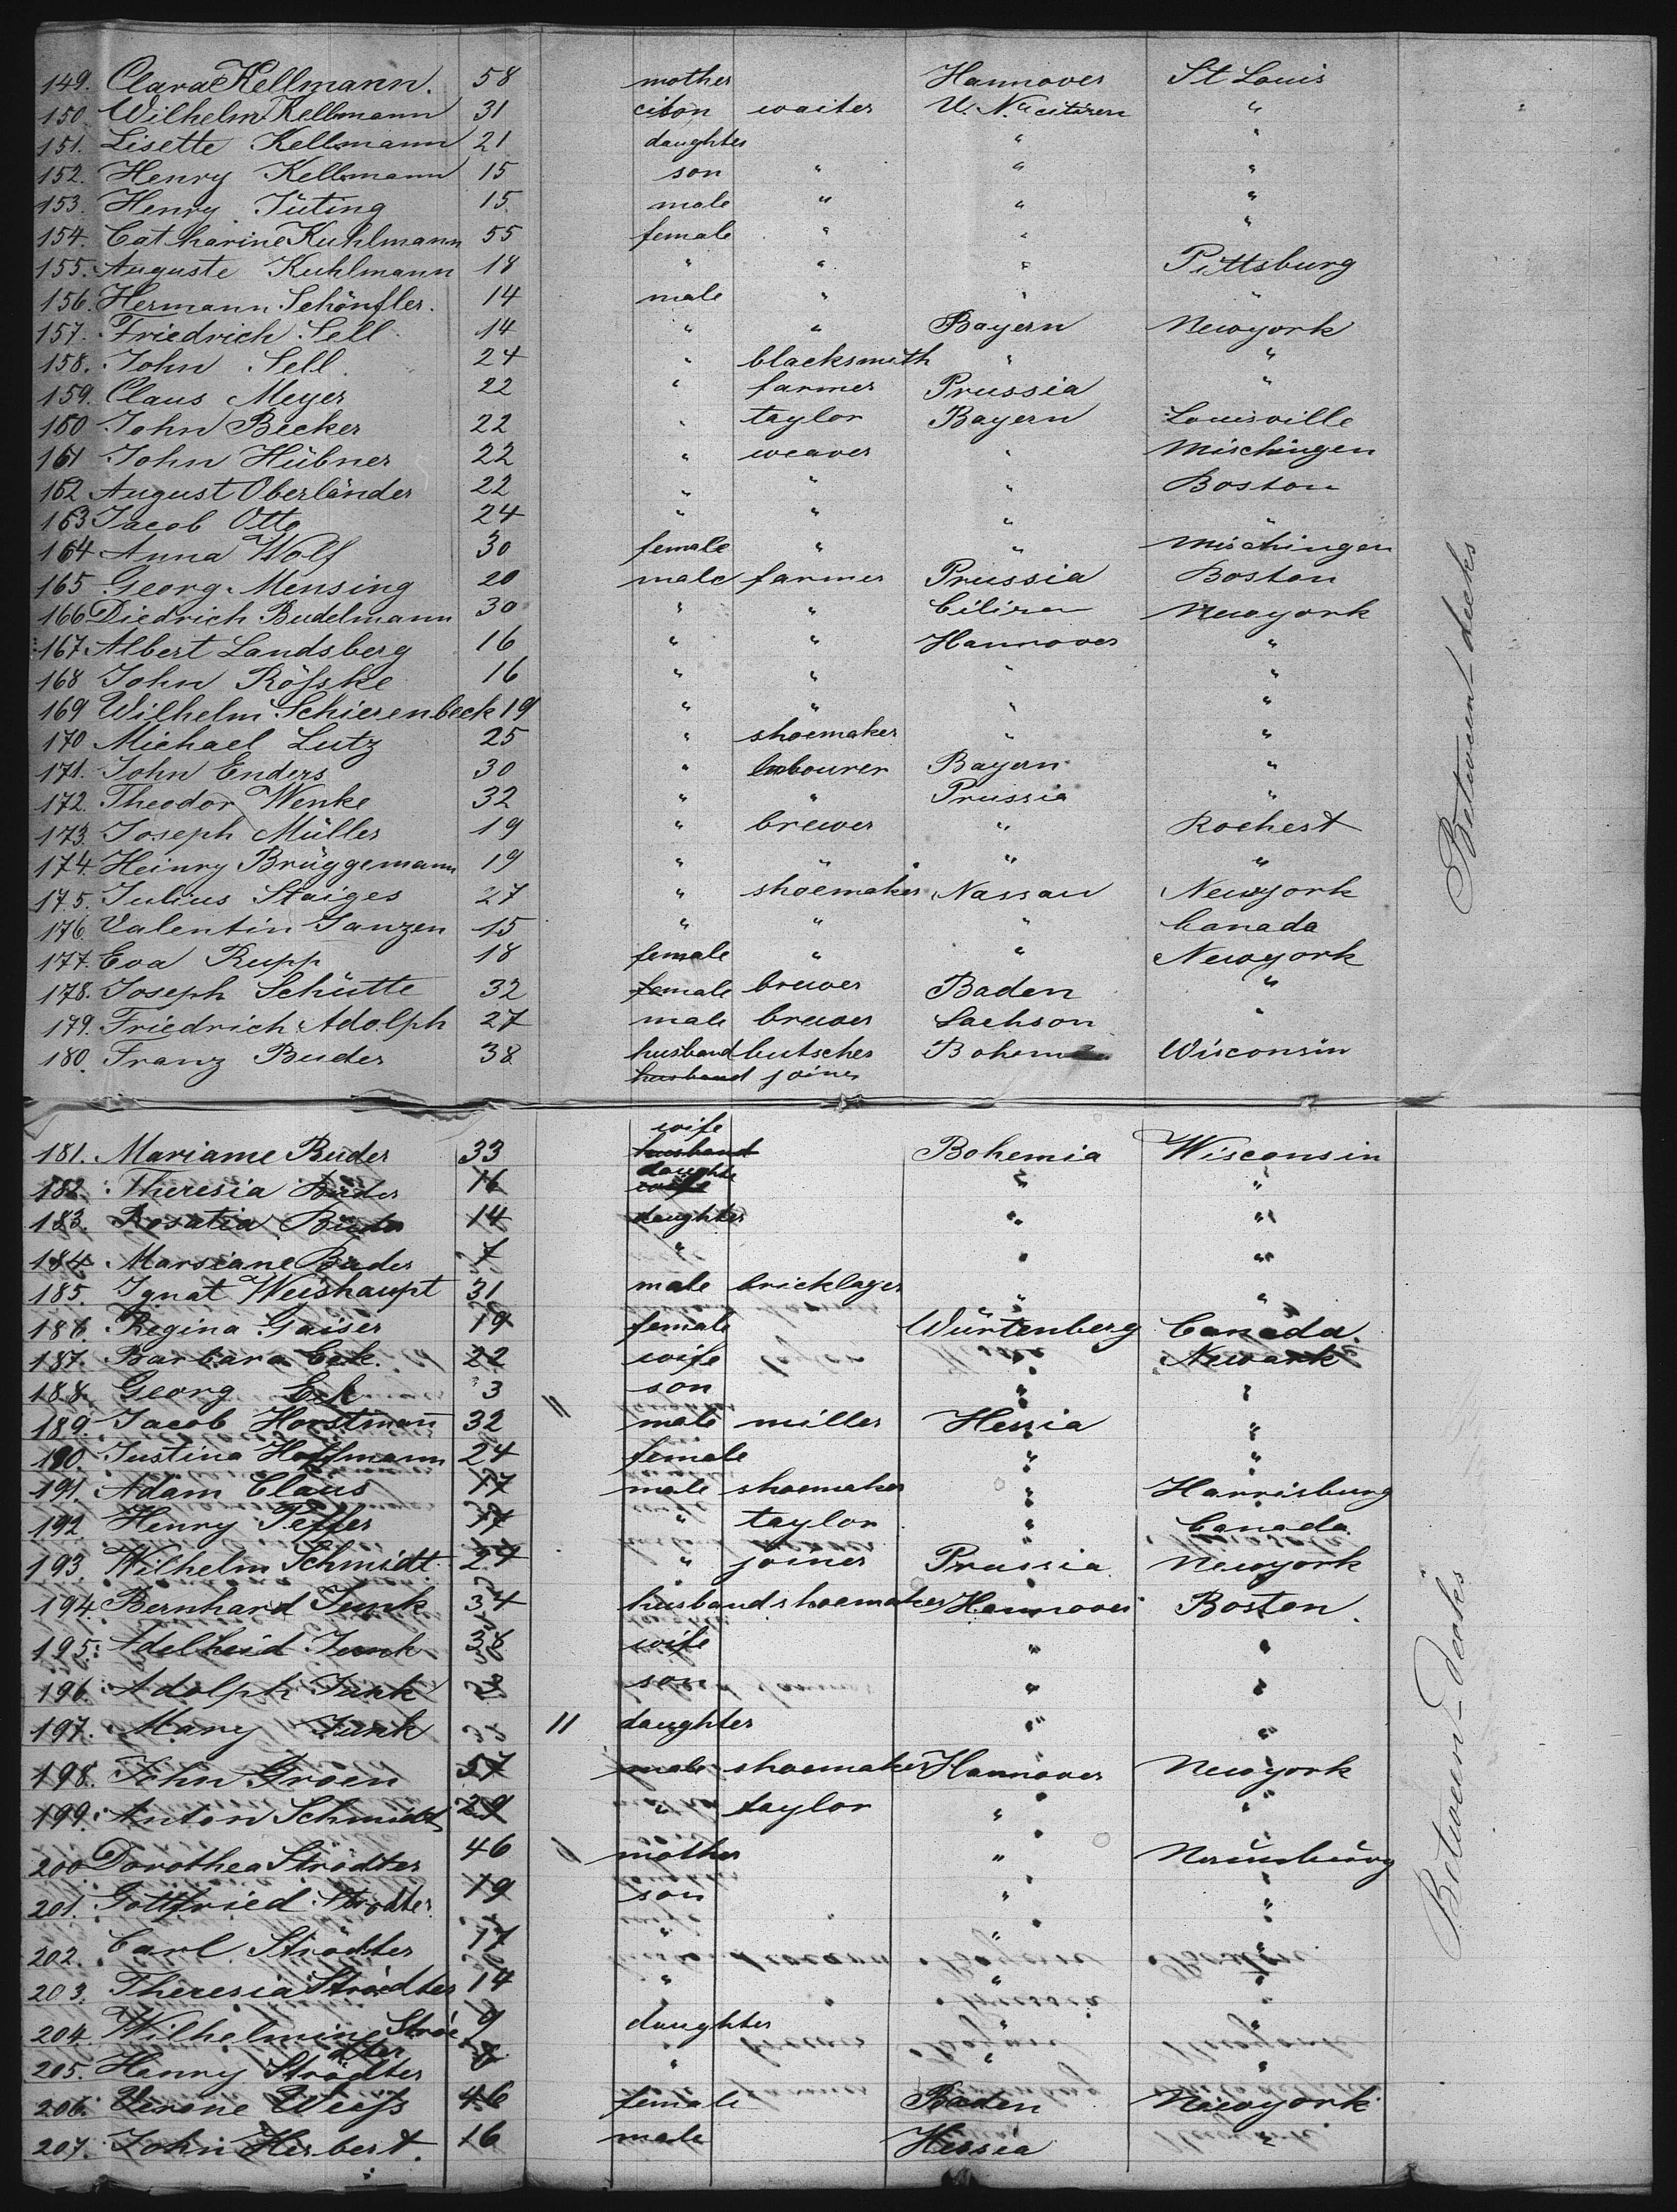 149. Clara Kellmann. 58 mother Hannover St Louis
150 Wilhelm Kellmann 31 waiter U. citizen "
151. Lisette Kellmann 21 daughter " "
152. Henry Kellmann 15 son " " "
153. Henry Jüting 15 male " " "
154. Catharine Kuhlmann 55 female " " "
155. Auguste Kuhlmann 18 " " " Pittsburg
156. Hermann Schönfler. 14 male " " "
157. Friedrich Sell 14 " " Bayern Newyork
158. John Sell. 24 " blacksmith " "
159. Claus Meyer 22 " farmer Prussia "
160 John Becker 22 " taylor Bayern Louisville
161 John Hübner 22 " weaver " Mischingen
162 August Oberländer 22 " " " Boston
163 Jacob Otto 24 " " " "
164 Anna Wolf 30 female " " Mischingen
165 Georg Mensing 20 male farmer Prussia Boston
166 Diedrich Budelmann 30 " " Newyork
167. Albert Landsberg 16 " " Hannover "
168 John Röfske 16 " " " "
169 Wilhelm Schierenbeck 19 " " " "
170 Michael Lutz 25 " shoemaker " "
171. John Enders 30 " labourer Bayern "
172. Theodor Wenke 32 " " Prussia "
173. Joseph Müller 19 " brewer " Rochest
174. Heinry Brüggemann 19 " " " "
175. Julius Staiges 27 " shoemaker Nassau Newyork
176. Valentin Janzen 15 " " " Canada
177. Eva Rupp 18 female " " Newyork
178. Joseph Schütte 32 female brewer Baden "
179. Friedrich Adolph 27 male brewer Sachson "
180. Franz Buder 38 husband butscher Bohem Wisconsin
husband joiner
Between decks
wife
181. Mariame Buder 33 husband Bohemia Wisconsin
daughte
182. Theresia Buder 16 wife " "
183. Rosalia Buder 14 daughter " "
184. Marsiane Buder 7 " " "
185. Ignat Weishaupt 31 male bricklayer " "
186. Regina Gaiser 19 female Würtenberg Canada.
187. Barbara Eck. 22 wife " Newark
188. Georg Eck 3 son " "
189. Jacob Horstmann 32 male miller Hessia "
190. Justina Hoffmann 24 female " "
191. Adam Claus 17 male shoemaker " Harrisburg
192. Henry Peffer " taylor " Canada
193. Wilhelm Schmidt 24 " joiner Prussia Newyork
194. Bernhard Junk 34 husband shoemaker Hannover Boston.
195. Adelheid Junk 38 wife " "
196. Adolph Junk 3 son " "
197. Mary Junk 11 daughter " "
198. John Groen 57 male shoemaker Hannover Newyork
199. Anton Schmidt 29 " taylor " "
200 Dorothea Strödter 46 mother "
201. Gottfried Strödter 19 son " "
202. Carl Strödter 17 " " "
203. Theresia Strödter 14 " " "
204. Wilhelmine Ströe 9 daughter " "
dter
205. Henry Strödter 8 " " "
206. Verone Weifs 46 female Baden Newyork
207. John Herbert. 16 male Hessia "
Between-decks